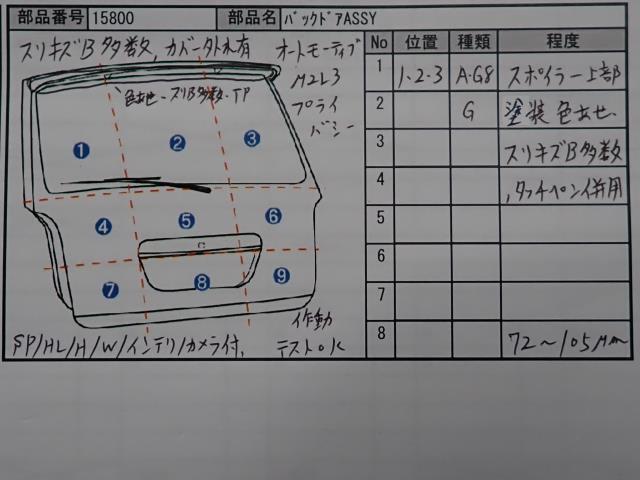 部品番号 15800 部品名 バックドアASSY
スリキズB多数,カバー外れ有
オートモーティブ
M2L3
プライ
バシー
色あせ・スリB多数・TP
① ② ③
④ ⑤ ⑥
⑦ ⑧ ⑨
作動
テストOK
SP/HL/H/W/インテリ/カメラ付,
No 位置 種類 程度
1 1・2・3 A・G8 スポイラー上部
2 G 塗装色あせ
3 スリキズB多数
4 ,タッチペン併用
5
6
7
8 72〜105μm